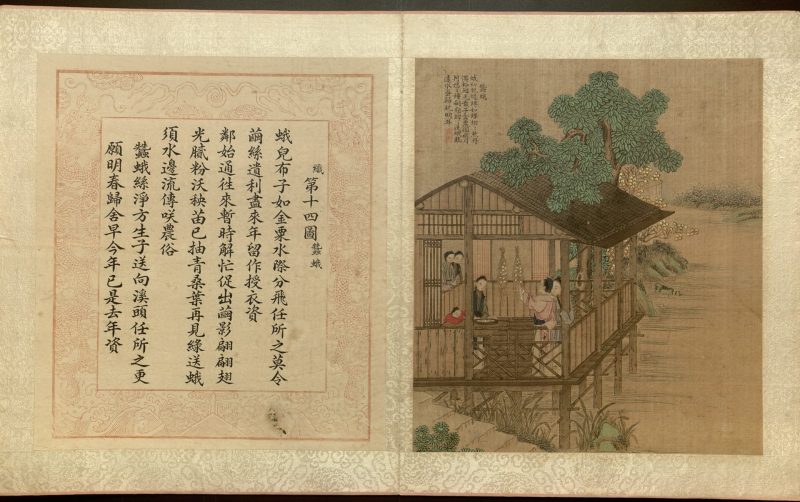 蠶蛾
織 第十四圖 蠶蛾
蛾兒布子如金粟水際分飛任所之莫令
繭絲遺利盡來年留作授衣資
鄰始通往來暫時解忙促出繭影翩翩翅
光膩粉沃秧苗已抽青桑葉再見綠送蛾
須水邊流傳咲農俗
蠶蛾絲淨方生子送向溪頭任所之更
願明春歸舍早今年已是去年資